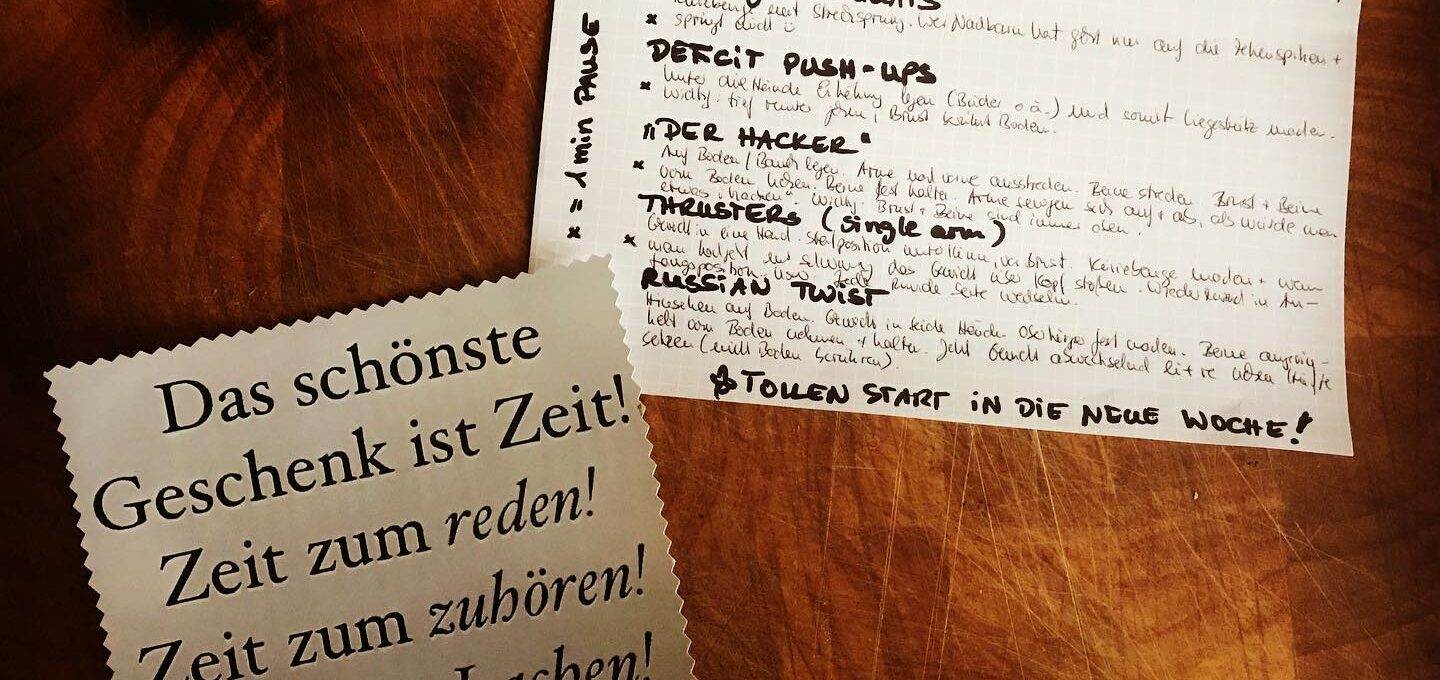 Kniebeuge mit Strecksprung. Wer Nachbarn hat geht nur auf die Zehenspitzen +
springt nicht
DEFICIT PUSH-UPS
Unter die Hände Erhöhung legen (Bücher o.ä.) und somit Liegestütz machen.
Wichtig: tief runter gehen, Brust berührt Boden.
"DER HACKER"
Auf Boden/Bauch legen. Arme nach vorne ausstrecken. Beine strecken. Brust + Beine
vom Boden heben. Beine fest halten. Arme bewegen sich auf + ab, als würde man
etwas "hacken". Wichtig: Brust + Beine sind immer oben.
THRUSTERS (single arm)
Gewicht in eine Hand. Startposition vor Brust. Kniebeuge machen + wenn
man hochgeht mit Schwung das Gewicht über Kopf stoßen. Wieder zurück in An-
fangsposition usw. Jede Runde Seite wechseln.
RUSSIAN TWIST
Hinsetzen auf Boden. Gewicht in beide Hände. Oberkörper fest machen. Beine angewin-
kelt vom Boden nehmen + halten. Jetzt Gewicht abwechselnd li + re neben Hüfte
setzen (nicht Boden berühren).
TOLLEN START IN DIE NEUE WOCHE!
x = 1 min PAUSE
Das schönste
Geschenk ist Zeit!
Zeit zum reden!
Zeit zum zuhören!